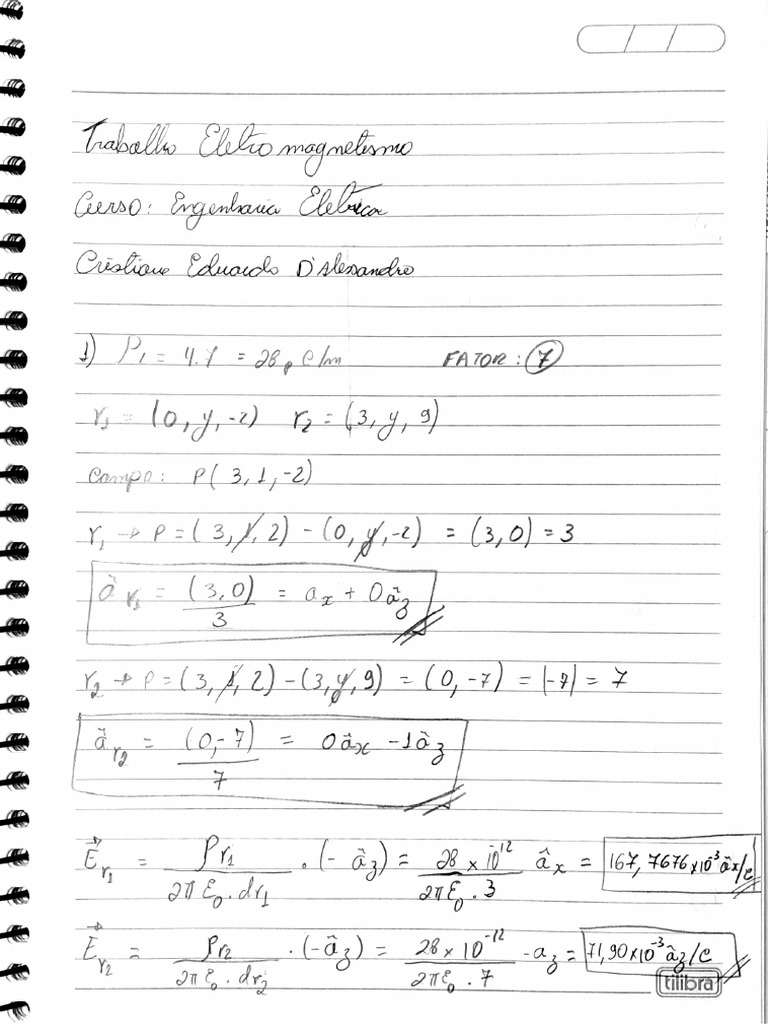 Trabalho Eletromagnetismo
Curso: Engenharia Elétrica
Cristiano Eduardo D'Alessandro
1) ρ₁ = 4.7 = 28 p C/m FATOR: 7
r₁ = (0, y, -2) r₂ = (3, y, 9)
campo: P(3, 1, -2)
r₁ → P = (3, 1, 2) - (0, y, -2) = (3, 0) = 3
â r₁ = (3, 0)/3 = ax + 0âz
r₂ → P = (3, 1, 2) - (3, y, 9) = (0, -7) = |-7| = 7
â r₂ = (0, -7)/7 = 0âx - 1âz
E⃗r₁ = ρr₁/2πε₀.dr₁ . (-âz) = 28 × 10⁻¹²/2πε₀.3 âx = 167,7676×10⁻³ âx/C
E⃗r₂ = ρr₂/2πε₀.dr₂ . (-âz) = 28 × 10⁻¹²/2πε₀.7 -az = 71,90×10⁻³ âz/C
tilibra